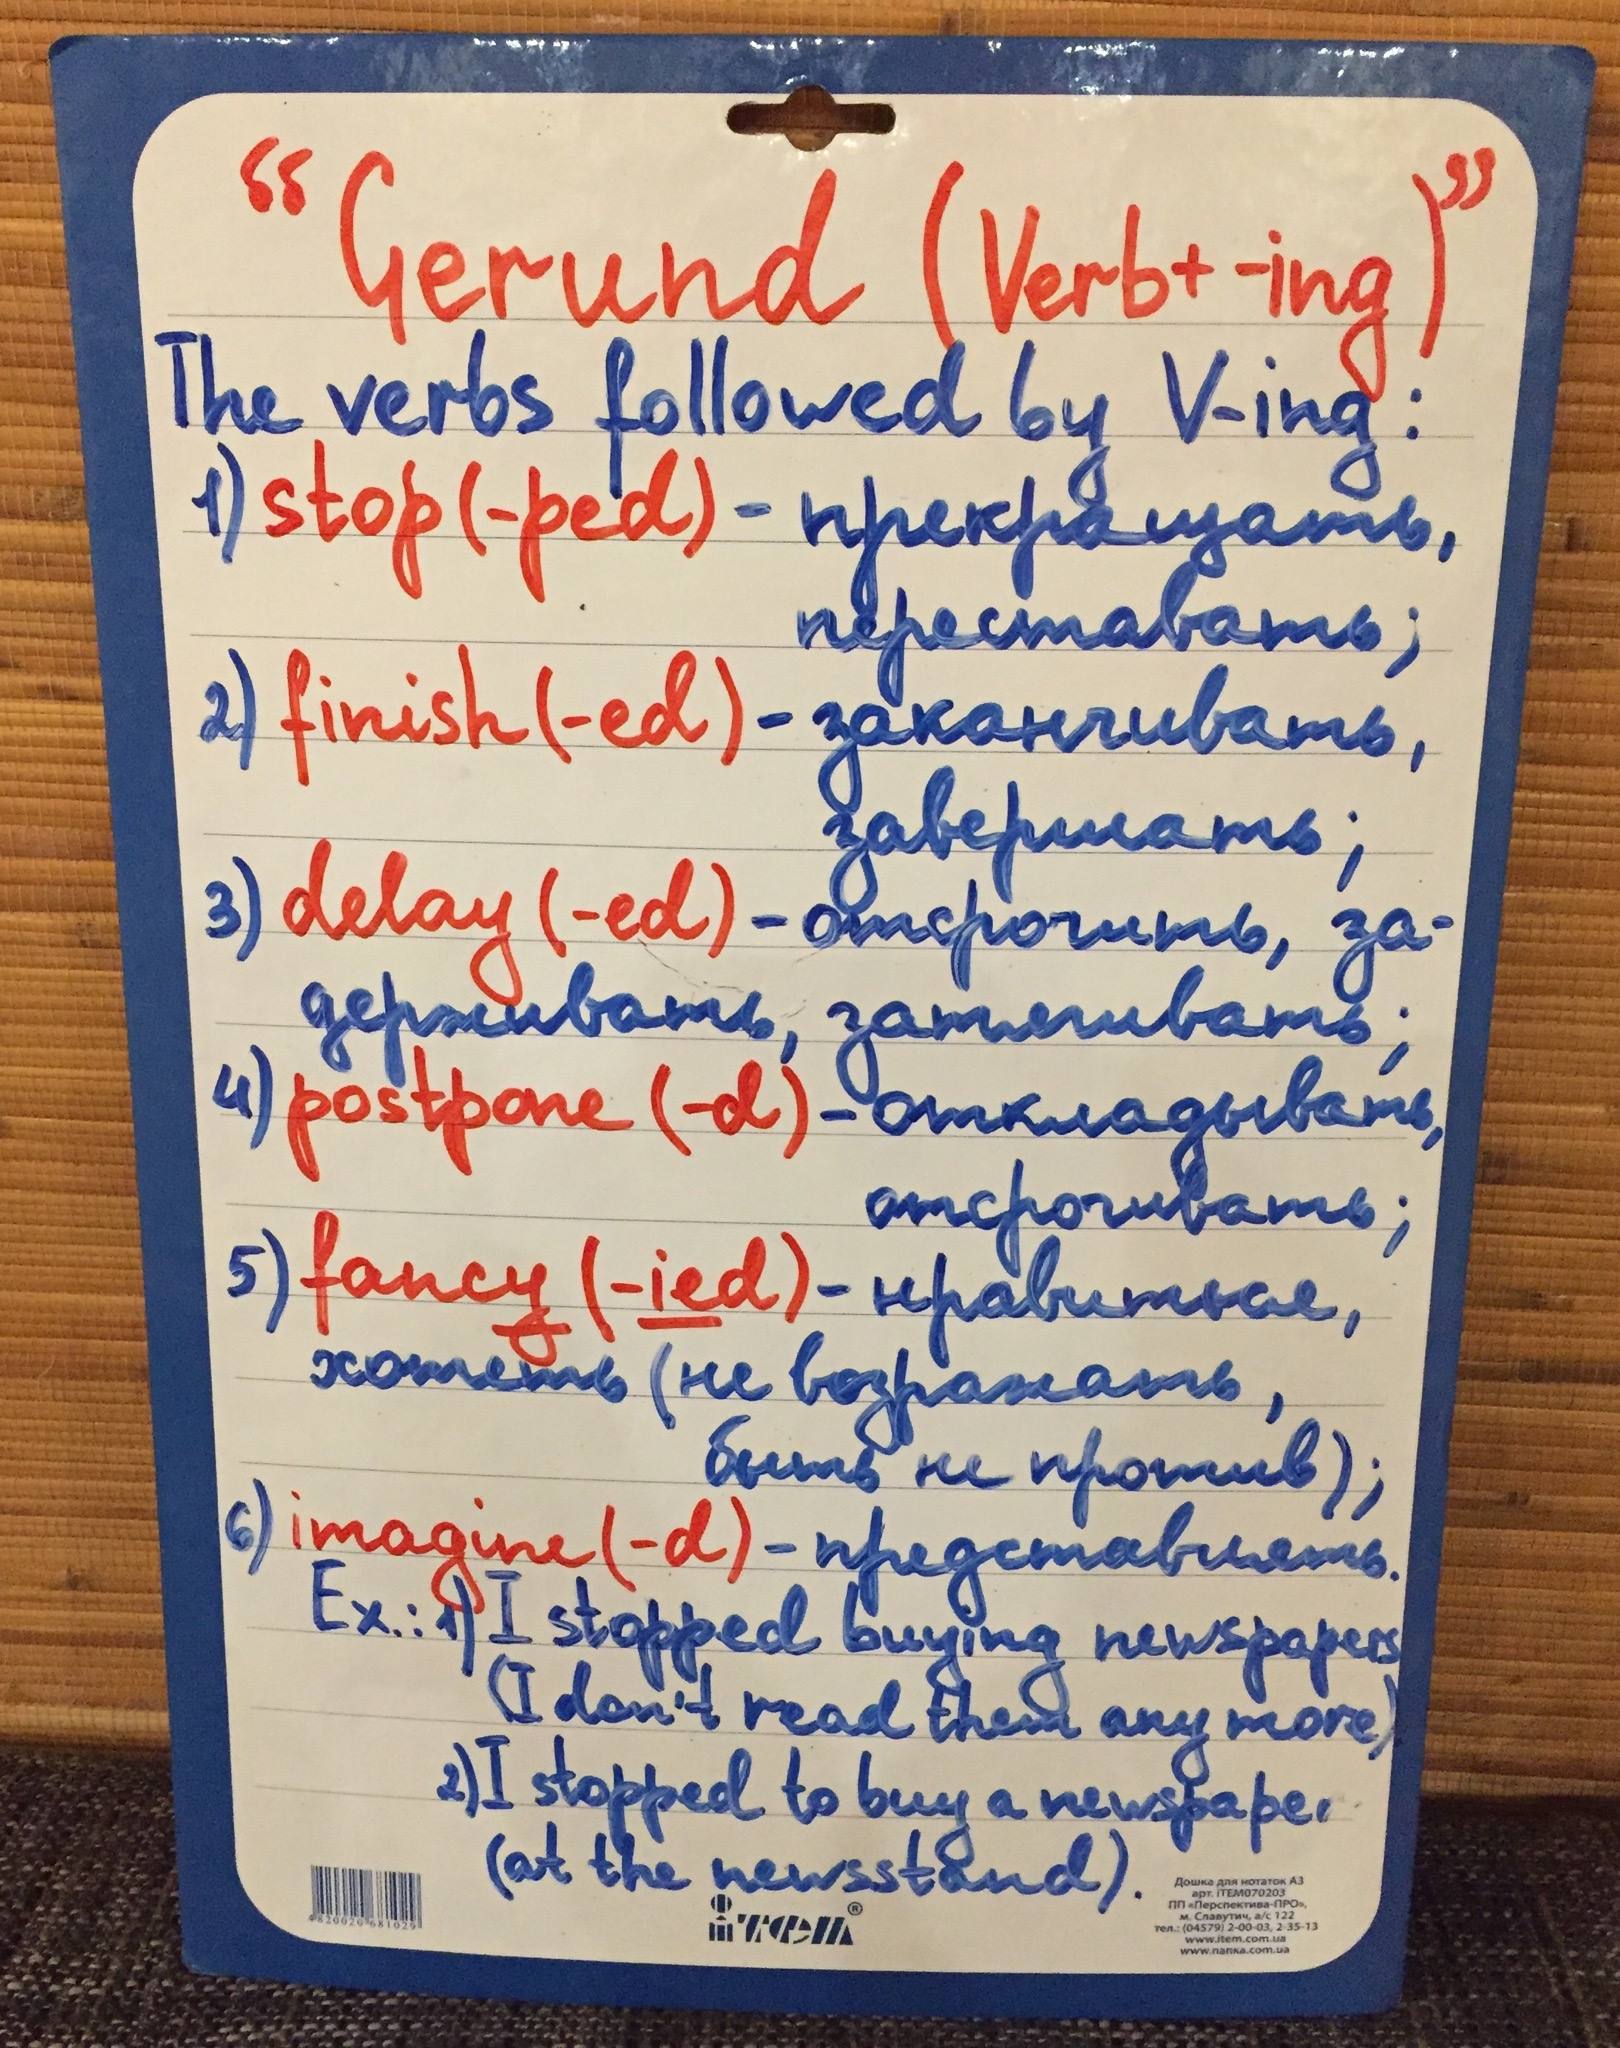 “Gerund (Verb+ -ing)”
The verbs followed by V-ing:
1) stop (-ped) - прекращать,
переставать;
2) finish (-ed) - заканчивать,
завершать;
3) delay (-ed) - отсрочить, за-
держивать, затягивать;
4) postpone (-d) - откладывать,
отсрочивать;
5) fancy (-ied) - нравиться,
хотеть (не возражать,
быть не против);
6) imagine (-d) - представлять.
Ex.: 1) I stopped buying newspapers
(I don't read them any more)
2) I stopped to buy a newspaper
(at the newsstand).
4820020681029
item®
Дошка для нотаток А3
арт. iTEM070203
ПП «Перспектива-ПРО»,
м. Славутич, а/с 122
тел.: (04579) 2-00-03, 2-35-13
www.item.com.ua
www.папка.com.ua